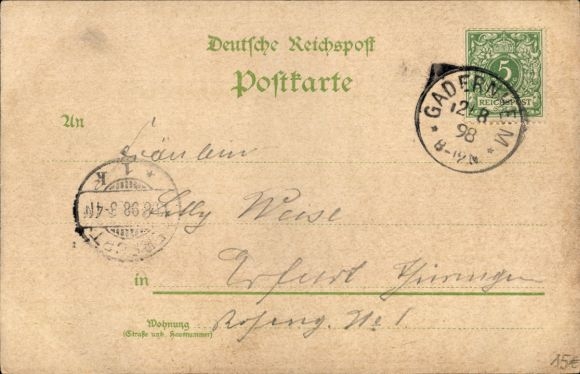 Deutsche Reichspost
Postkarte
5
REICHSPOST
GADERNHEM
12 8
98
8-9 N
An
Fräulein
1
K
98 3-4N
ERFURT
Lilly Weise
in Erfurt Thüringen
Wohnung
(Straße und Hausnummer)
Roseng. No 1
15€